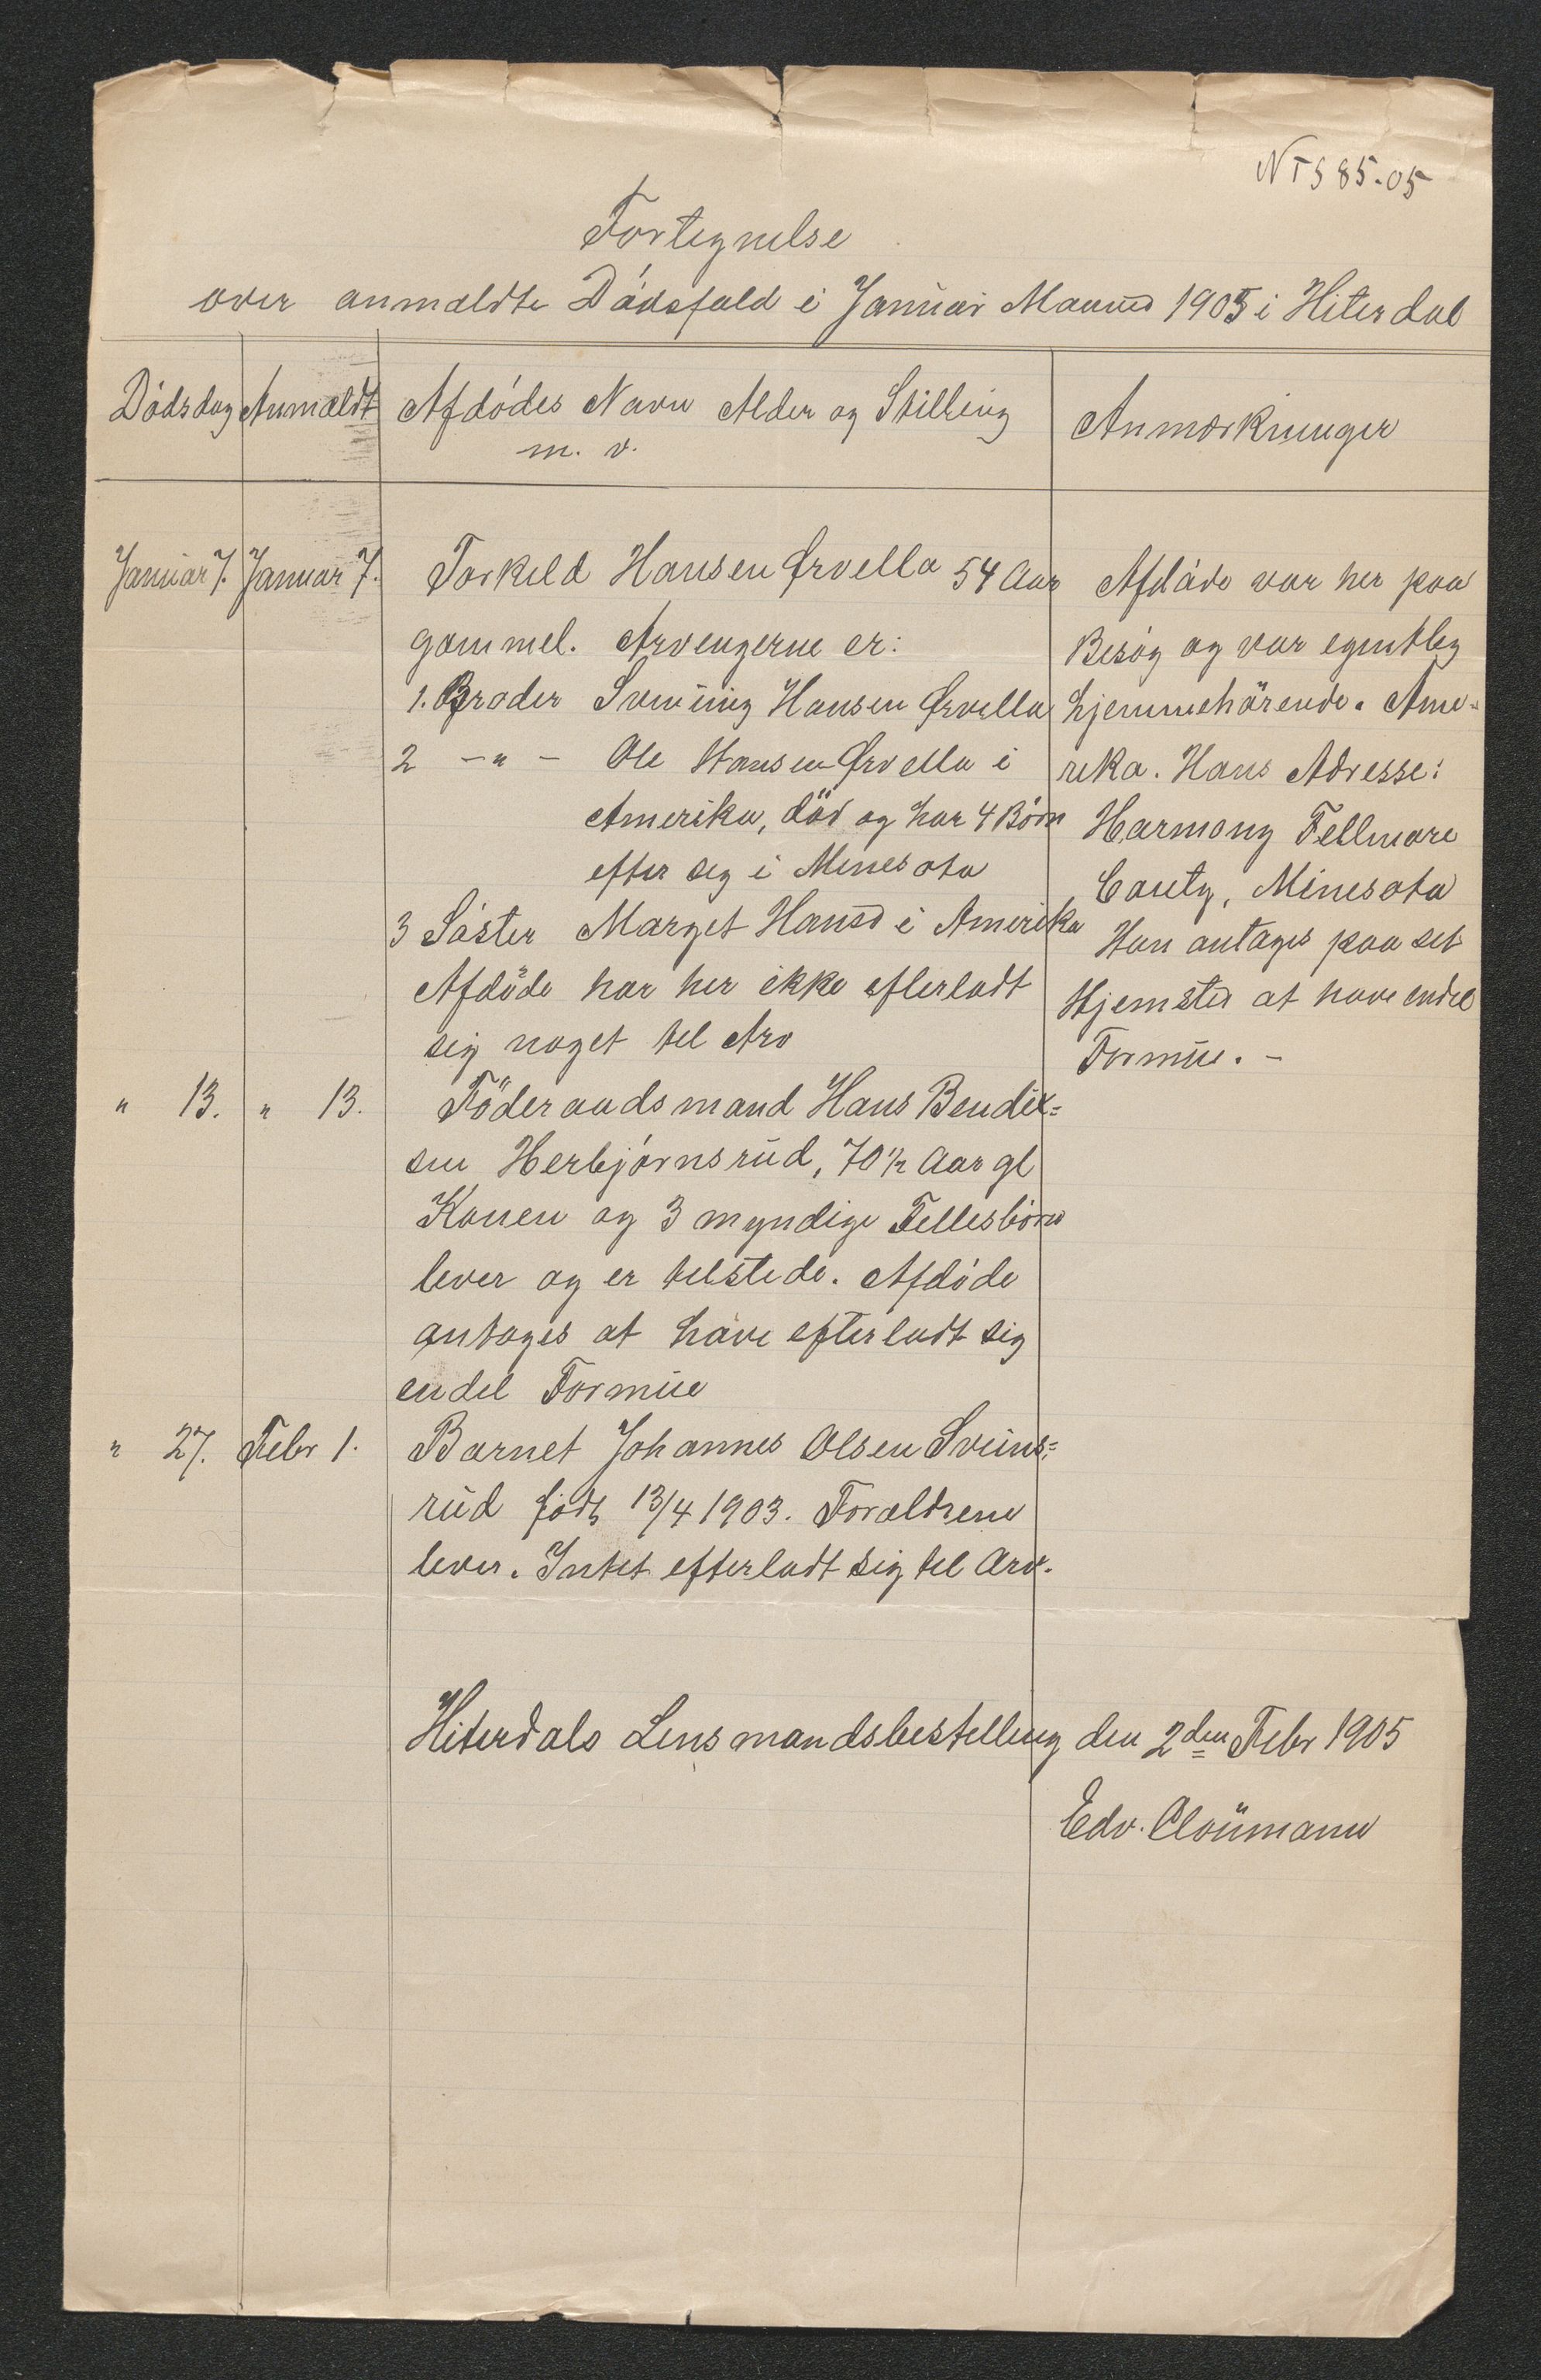 NTS 85-05
Fortegnelse
over anmeldte Dödsfald i Januar Maaned 1905 i Hiterdal
Dödsdag Anmeldt Afdödes Navn Alder og Stilling Anmærkninger
m. v.
Januar 7. Januar 7. Torkild Hansen Ørvella 54 Aar
gammel. Arvingerne er:
1. Broder Svenung Hansen Ørvella
2 -"- Ole Hansen Ørvella i
Amerika, död og har 4 Börn
efter sig i Minesota
3 Söster Marget Hansd i Amerika
Afdöde har her ikke efterladt
sig noget til Arv
Afdöde var her paa
Besög og var egentleg
hjemmehörende. Ame-
rika. Hans Adresse:
Harmony Fellmore
Couty, Minesota
Han antages paa set
Hjemsted at have endel
Formue. -
" 13. " 13. Föderaadsmand Hans Bendix=
sen Herbjörnsrud, 70 1/2 Aar gl
Konen og 3 myndige Fellesbörn
lever og er tilstede. Afdöde
antages at have efterladt sig
endel Formue
" 27. Febr 1. Barnet Johannes Olsen Sveins=
rud födt 13/4 1903. Foraldrene
lever. Intet efterladt sig til Arv.
Hiterdals Lensmandsbestilling den 2den Febr 1905
Edv. Cloumann